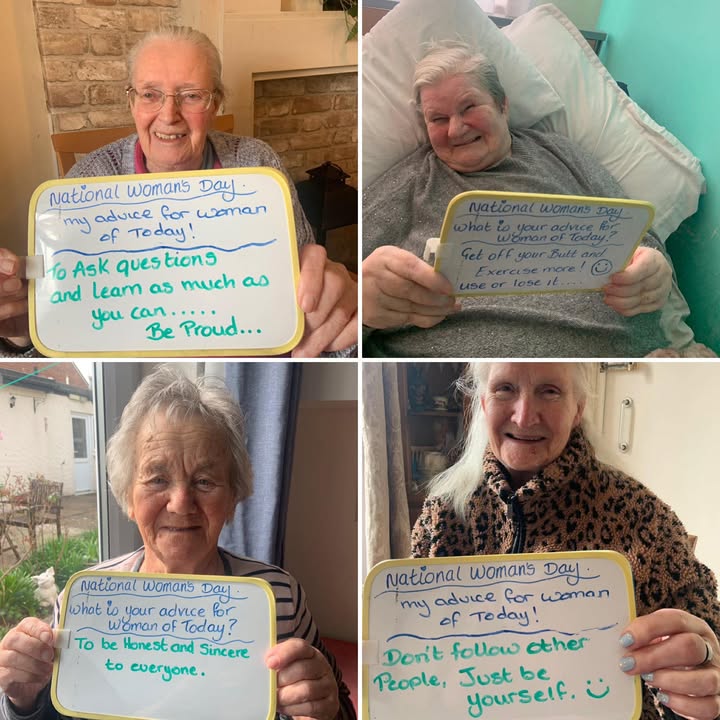 National Woman's Day.
my advice for woman
of Today!
To Ask questions
and learn as much as
you can.....
Be Proud...
National Woman's Day.
what is your advice for
Woman of Today?
Get off your Butt and
Exercise more!
use or lose it....
National Woman's Day.
what is your advice for
Woman of Today?
To be Honest and Sincere
to everyone.
National Woman's Day.
my advice for woman
of Today!
Don't follow other
People, Just be
yourself.